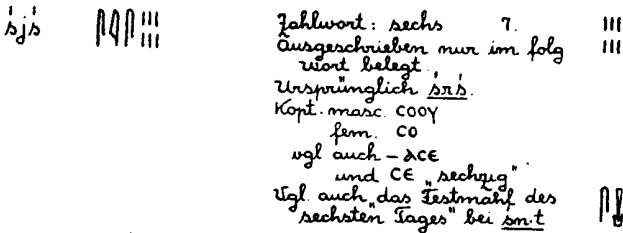 śjś 𓋴𓇋𓋴𓏿 Zahlwort: sechs 7. 𓏿
Ausgeschrieben nur im folg
wort belegt.
Ursprünglich śrś.
Kopt. masc. ⲤⲞⲞⲨ
fem. ⲤⲞ
vgl auch – ⲀⲤⲈ
und ⲤⲈ „sechzig"
Vgl. auch „das Festmahl des
sechsten Tages" bei śn.t